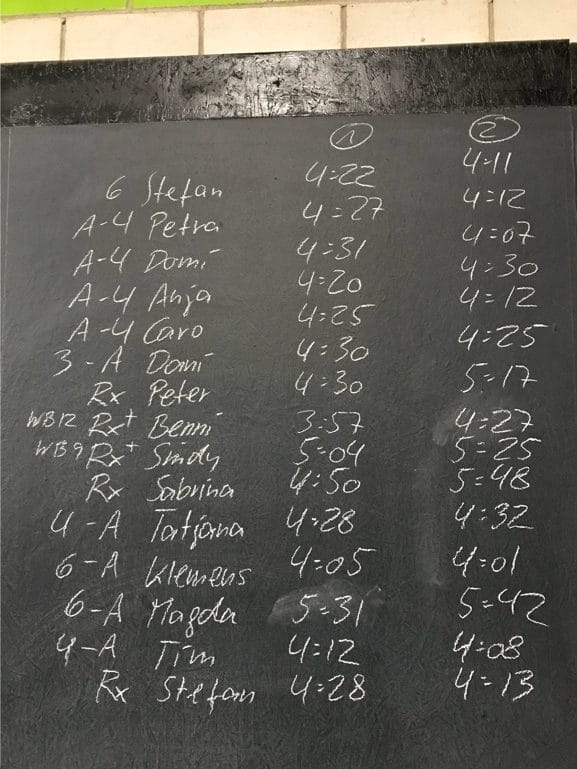 ① ②
6 Stefan 4:22 4:11
A-4 Petra 4:27 4:12
A-4 Domi 4:31 4:07
A-4 Anja 4:20 4:30
A-4 Caro 4:25 4:12
3-A Domi 4:30 4:25
Rx Peter 4:30 5:17
WB12 Rx+ Benni 3:57 4:27
WB9 Rx+ Smdy 5:04 5:25
Rx Sabrina 4:50 5:48
4-A Tatjana 4:28 4:32
6-A Klemens 4:05 4:01
6-A Magda 5:31 5:42
4-A Tim 4:12 4:08
Rx Stefan 4:28 4:13